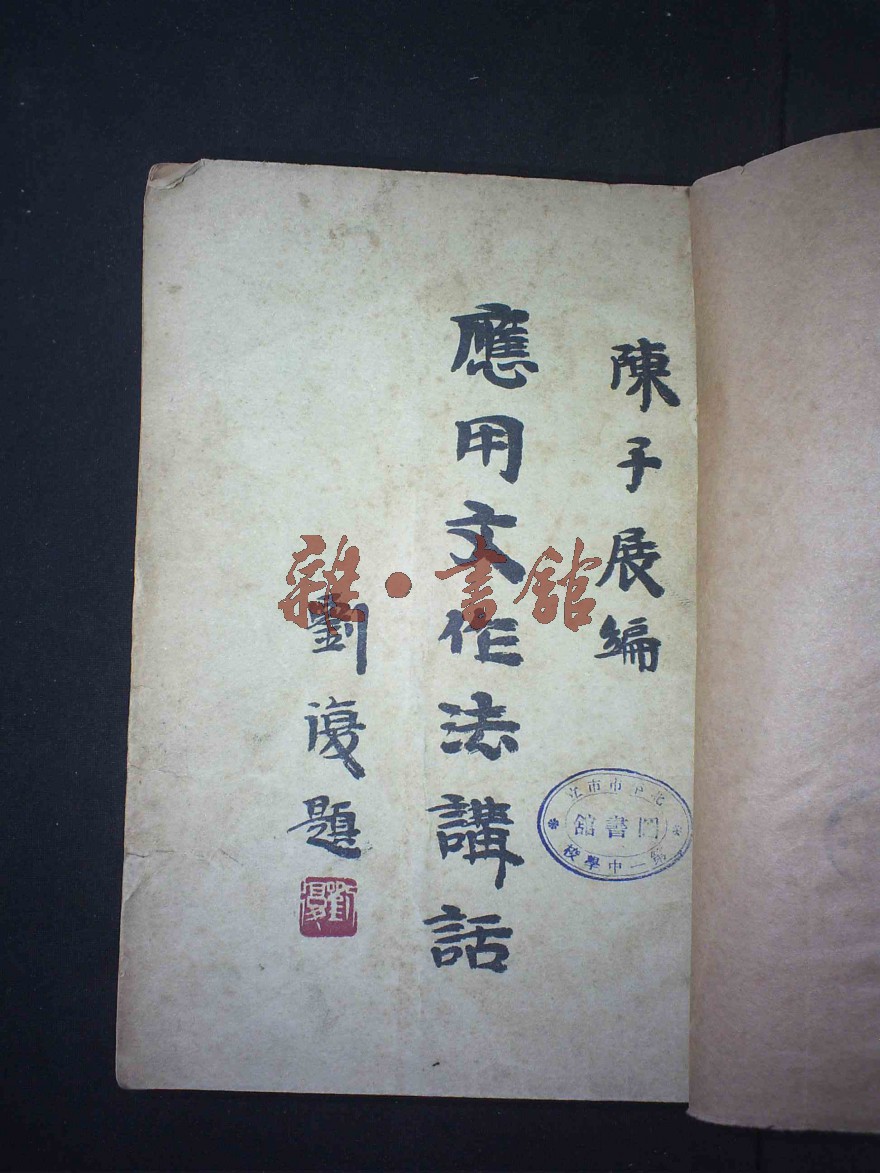 陳子展編
應用文作法講話
劉復題
劉復
雜·書館
北平市市立
圖書館
第一中學校